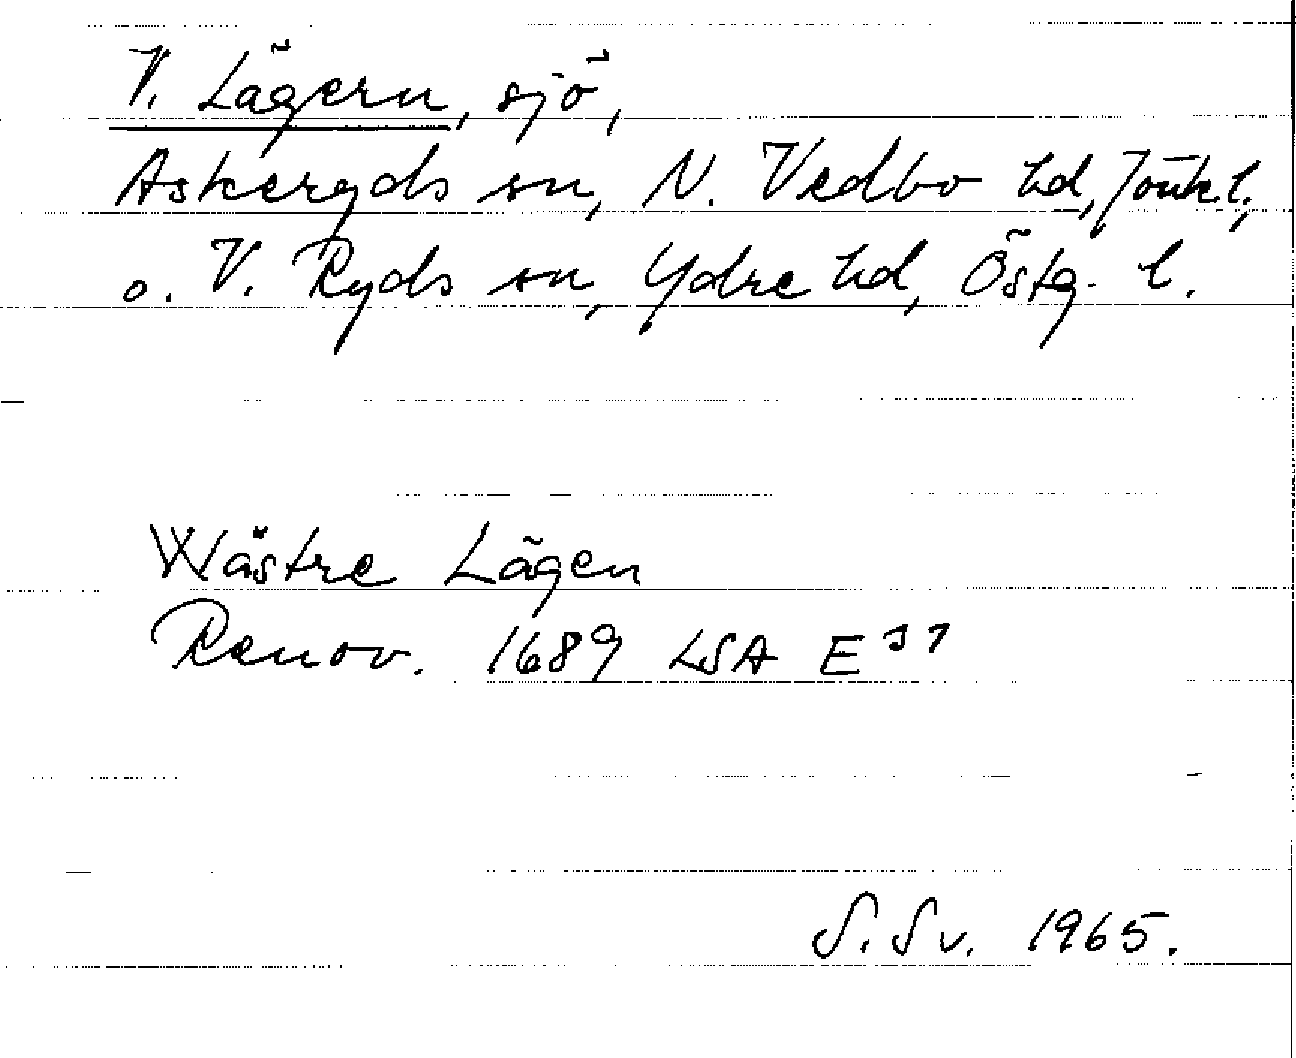 V. Lägern, sjö,
Askeryds sn, N. Vedbo hd, Jönk. l.,
o. V. Ryds sn, Ydre hd, Östg. l.
Wästre Lägen
Renov. 1689 LSA E 37
S. Sv. 1965.